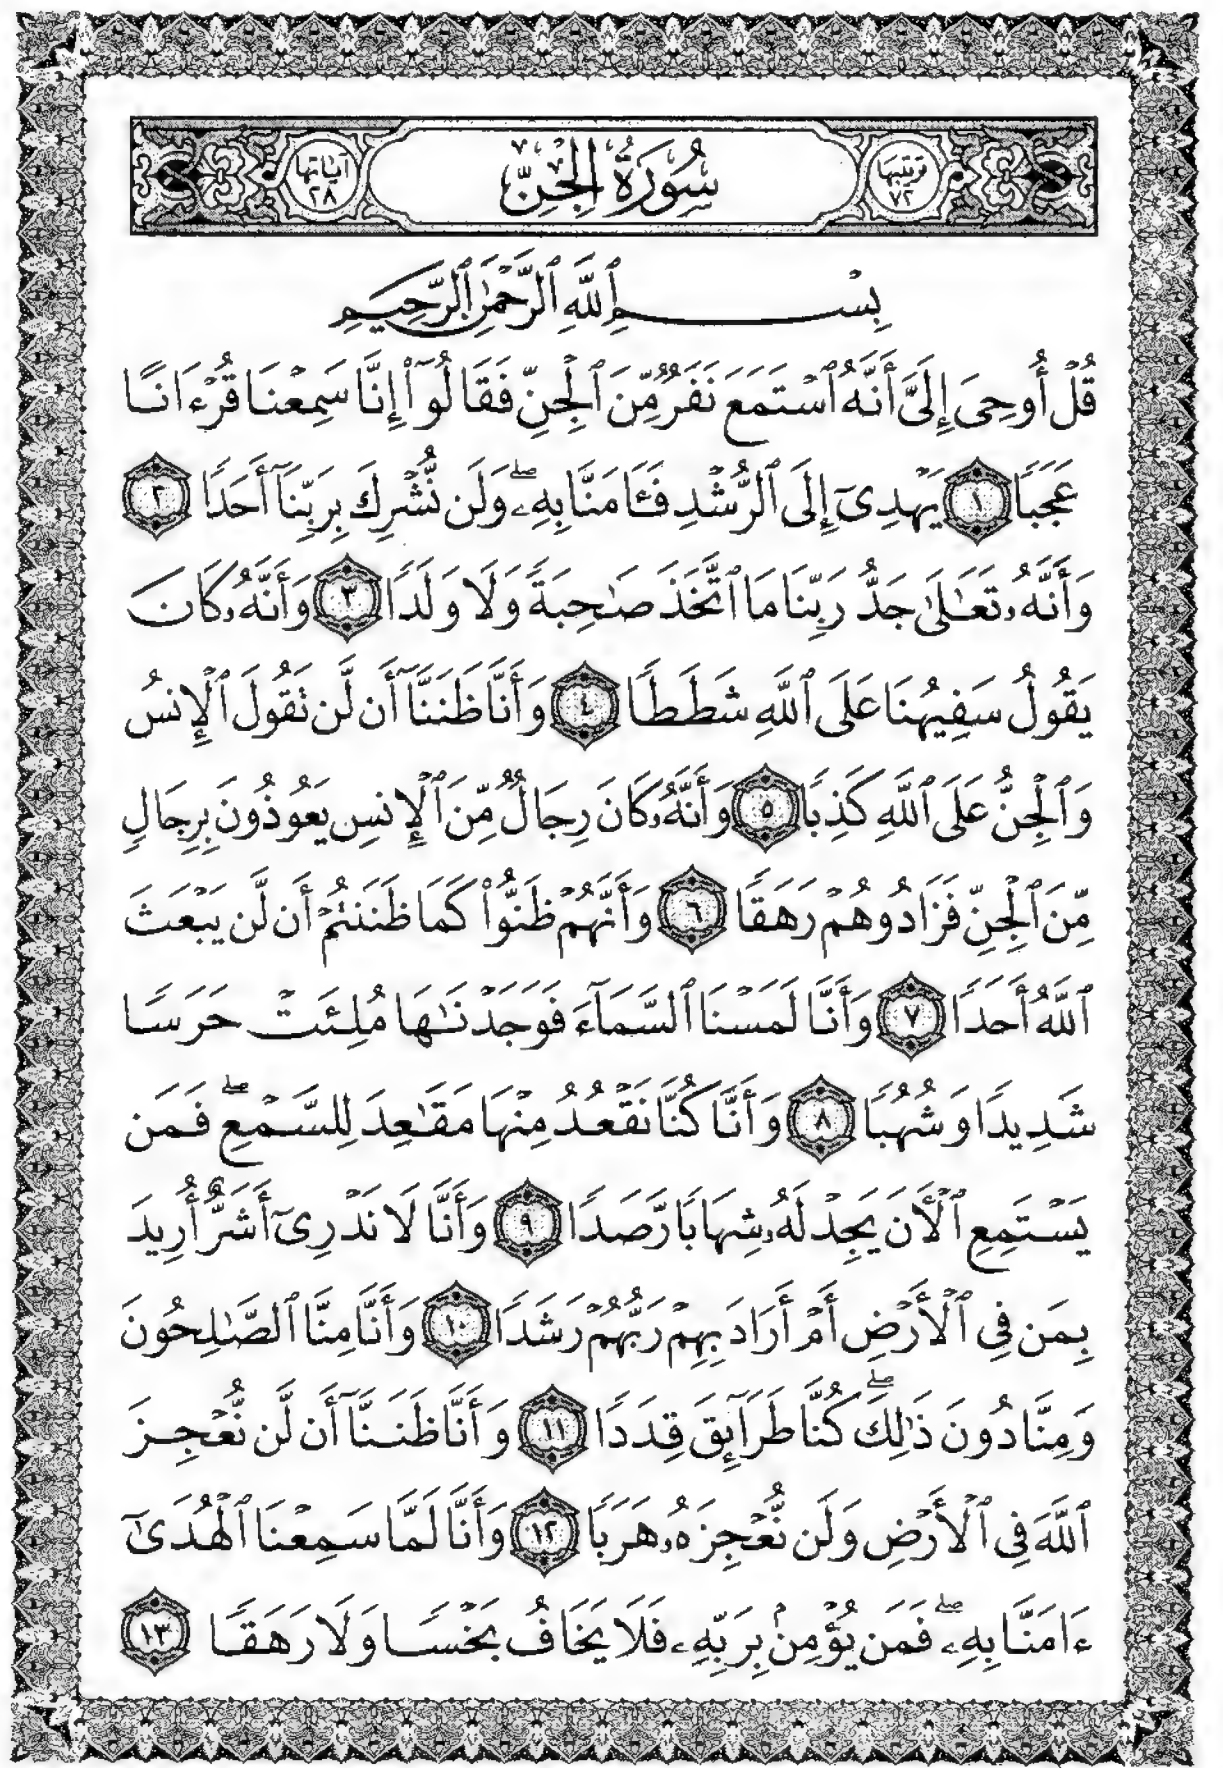 ترتيبها ٧٢
سُورَةُ الْجِنِّ
آياتها ٢٨
بِسْمِ ٱللَّهِ ٱلرَّحْمَٰنِ ٱلرَّحِيمِ
قُلْ أُوحِىَ إِلَىَّ أَنَّهُ ٱسْتَمَعَ نَفَرٌ مِّنَ ٱلْجِنِّ فَقَالُوٓا۟ إِنَّا سَمِعْنَا قُرْءَانًا
عَجَبًا ١ يَهْدِىٓ إِلَى ٱلرُّشْدِ فَـَٔامَنَّا بِهِۦ ۖ وَلَن نُّشْرِكَ بِرَبِّنَآ أَحَدًا ٢
وَأَنَّهُۥ تَعَٰلَىٰ جَدُّ رَبِّنَا مَا ٱتَّخَذَ صَٰحِبَةً وَلَا وَلَدًا ٣ وَأَنَّهُۥ كَانَ
يَقُولُ سَفِيهُنَا عَلَى ٱللَّهِ شَطَطًا ٤ وَأَنَّا ظَنَنَّآ أَن لَّن تَقُولَ ٱلْإِنسُ
وَٱلْجِنُّ عَلَى ٱللَّهِ كَذِبًا ٥ وَأَنَّهُۥ كَانَ رِجَالٌ مِّنَ ٱلْإِنسِ يَعُوذُونَ بِرِجَالٍ
مِّنَ ٱلْجِنِّ فَزَادُوهُمْ رَهَقًا ٦ وَأَنَّهُمْ ظَنُّوا۟ كَمَا ظَنَنتُمْ أَن لَّن يَبْعَثَ
ٱللَّهُ أَحَدًا ٧ وَأَنَّا لَمَسْنَا ٱلسَّمَآءَ فَوَجَدْنَٰهَا مُلِئَتْ حَرَسًا
شَدِيدًا وَشُهُبًا ٨ وَأَنَّا كُنَّا نَقْعُدُ مِنْهَا مَقَٰعِدَ لِلسَّمْعِ ۖ فَمَن
يَسْتَمِعِ ٱلْأَنَ يَجِدْ لَهُۥ شِهَابًا رَّصَدًا ٩ وَأَنَّا لَا نَدْرِىٓ أَشَرٌّ أُرِيدَ
بِمَن فِى ٱلْأَرْضِ أَمْ أَرَادَ بِهِمْ رَبُّهُمْ رَشَدًا ١٠ وَأَنَّا مِنَّا ٱلصَّٰلِحُونَ
وَمِنَّا دُونَ ذَٰلِكَ ۖ كُنَّا طَرَآئِقَ قِدَدًا ١١ وَأَنَّا ظَنَنَّآ أَن لَّن نُّعْجِزَ
ٱللَّهَ فِى ٱلْأَرْضِ وَلَن نُّعْجِزَهُۥ هَرَبًا ١٢ وَأَنَّا لَمَّا سَمِعْنَا ٱلْهُدَىٰٓ
ءَامَنَّا بِهِۦ ۖ فَمَن يُؤْمِنۢ بِرَبِّهِۦ فَلَا يَخَافُ بَخْسًا وَلَا رَهَقًا ١٣